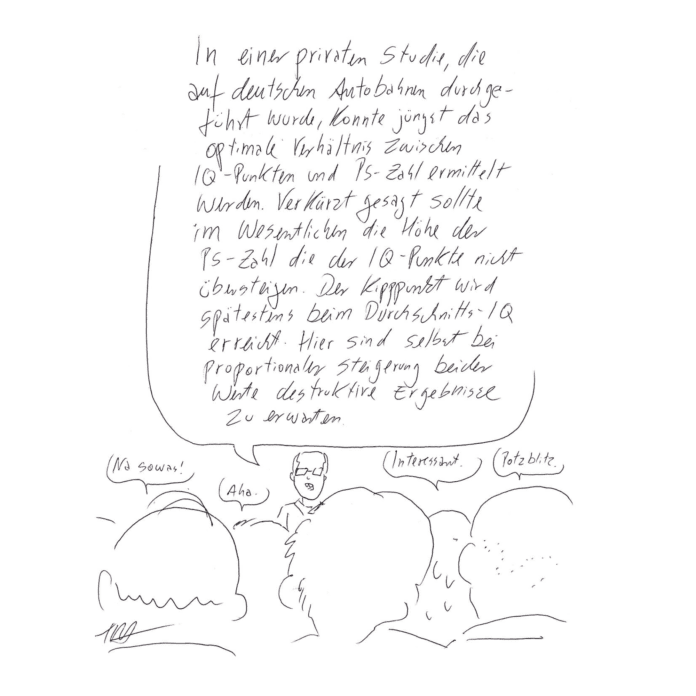 In einer privaten Studie, die
auf deutschen Autobahnen durchge-
führt wurde, konnte jüngst das
optimale Verhältnis zwischen
IQ-Punkten und PS-Zahl ermittelt
werden. Verkürzt gesagt sollte
im Wesentlichen die Höhe der
PS-Zahl die der IQ-Punkte nicht
übersteigen. Der Kipppunkt wird
spätestens beim Durchschnitts-IQ
erreicht. Hier sind selbst bei
proportionaler Steigerung beider
Werte destruktive Ergebnisse
zu erwarten.
Na sowas!
Aha.
Interessant.
Potzblitz.